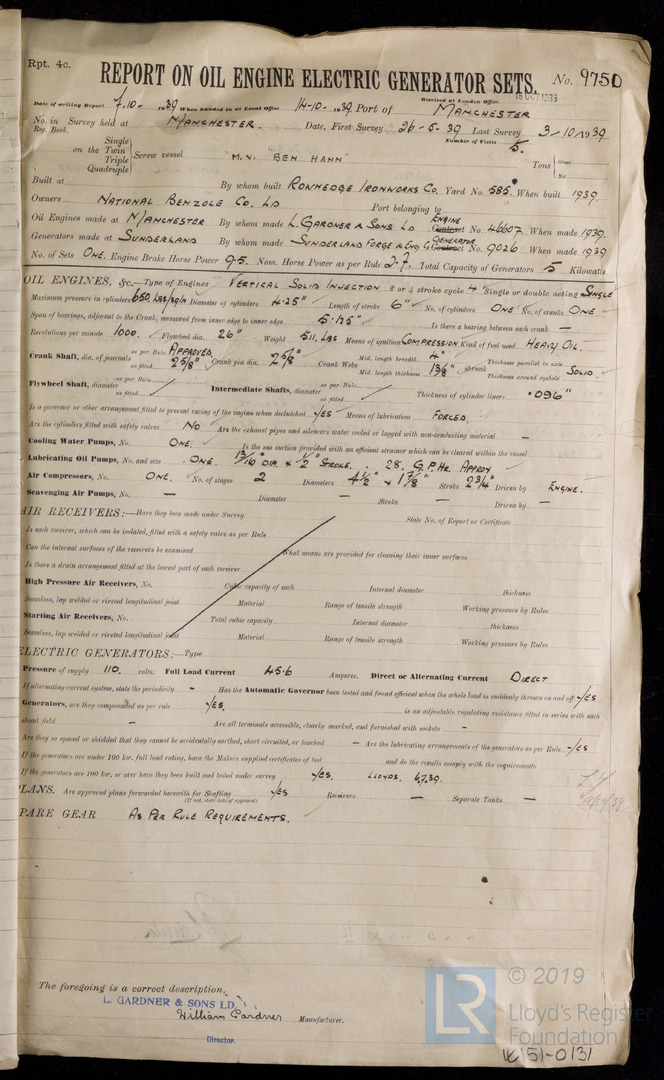 Rpt. 4c.
REPORT ON OIL ENGINE ELECTRIC GENERATOR SETS. No. 9750
Received at London Office
Date of writing Report 7.10- 1939 When handed in at Local Office 14-10- 1939 Port of MANCHESTER
No. in Survey held at MANCHESTER. Date, First Survey 26-5-39 Last Survey 3/10/1939
Reg. Book. Number of Visits 5.
Single
on the Twin
Triple
Quadruple
Screw vessel M.V. "BEN HANN" Tons Gross
Net
Built at By whom built ROWHEDGE IRONWORKS CO. Yard No. 585 When built 1939.
Owners NATIONAL BENZOLE CO. LD Port belonging to
Oil Engines made at MANCHESTER By whom made L. GARDNER & SONS LD ENGINE Contract No. 46607 When made 1939.
Generators made at SUNDERLAND By whom made SUNDERLAND FORGE & ENG Co GENERATOR Contract No. 9026 When made 1939
No. of Sets ONE. Engine Brake Horse Power 9.5. Nom. Horse Power as per Rule 2.7. Total Capacity of Generators 5 Kilowatts.
OIL ENGINES, &c.—Type of Engines VERTICAL SOLID INJECTION 2 or 4 stroke cycle 4 Single or double acting SINGLE
Maximum pressure in cylinders 650 LBS/SQ/IN Diameter of cylinders 4.25" Length of stroke 6" No. of cylinders ONE No. of cranks ONE
Span of bearings, adjacent to the Crank, measured from inner edge to inner edge 5.125" Is there a bearing between each crank —
Revolutions per minute 1000. Flywheel dia. 26" Weight 511. LBS Means of ignition COMPRESSION Kind of fuel used HEAVY OIL.
Crank Shaft, dia. of journals as per Rule APPROVED. as fitted 2 5/8" Crank pin dia. 2 5/8" Crank Webs Mid. length breadth 4" Mid. length thickness 1 3/8" shrunk Thickness parallel to axis Thickness around eyehole SOLID.
Flywheel Shaft, diameter as per Rule as fitted Intermediate Shafts, diameter as per Rule as fitted Thickness of cylinder liners .096"
Is a governor or other arrangement fitted to prevent racing of the engine when declutched YES Means of lubrication FORCED.
Are the cylinders fitted with safety valves NO Are the exhaust pipes and silencers water cooled or lagged with non-conducting material —
Cooling Water Pumps, No. ONE. Is the sea suction provided with an efficient strainer which can be cleared within the vessel
Lubricating Oil Pumps, No. and size ONE. 13/16" DIA. x 1/2" STROKE. 28. G.P.HR. APPROX
Air Compressors, No. ONE. No. of stages 2 Diameters 4 1/2" x 1 7/8" Stroke 2 3/4" Driven by ENGINE.
Scavenging Air Pumps, No. — Diameter — Stroke — Driven by —
AIR RECEIVERS:—Have they been made under Survey State No. of Report or Certificate
Is each receiver, which can be isolated, fitted with a safety valve as per Rule
Can the internal surfaces of the receivers be examined What means are provided for cleaning their inner surfaces
Is there a drain arrangement fitted at the lowest part of each receiver
High Pressure Air Receivers, No. Cubic capacity of each Internal diameter thickness
Seamless, lap welded or riveted longitudinal joint Material Range of tensile strength Working pressure by Rules
Starting Air Receivers, No. Total cubic capacity Internal diameter thickness
Seamless, lap welded or riveted longitudinal joint Material Range of tensile strength Working pressure by Rules
ELECTRIC GENERATORS:—Type
Pressure of supply 110. volts. Full Load Current 45.6 Amperes. Direct or Alternating Current DIRECT
If alternating current system, state the periodicity — Has the Automatic Governor been tested and found efficient when the whole load is suddenly thrown on and off YES
Generators, are they compounded as per rule YES. is an adjustable regulating resistance fitted in series with each
shunt field — Are all terminals accessible, clearly marked, and furnished with sockets —
Are they so spaced or shielded that they cannot be accidentally earthed, short circuited, or touched — Are the lubricating arrangements of the generators as per Rule YES
If the generators are under 100 kw. full load rating, have the Makers supplied certificates of test and do the results comply with the requirements
If the generators are 100 kw. or over have they been built and tested under survey YES. LLOYDS. 6.7.39.
PLANS. Are approved plans forwarded herewith for Shafting YES Receivers — Separate Tanks —
(If not, state date of approval)
SPARE GEAR AS PER RULE REQUIREMENTS.
The foregoing is a correct description,
L. GARDNER & SONS LD.
William Gardner Manufacturer.
Director.
LR
© 2019
Lloyd's Register
Foundation
W151-0131